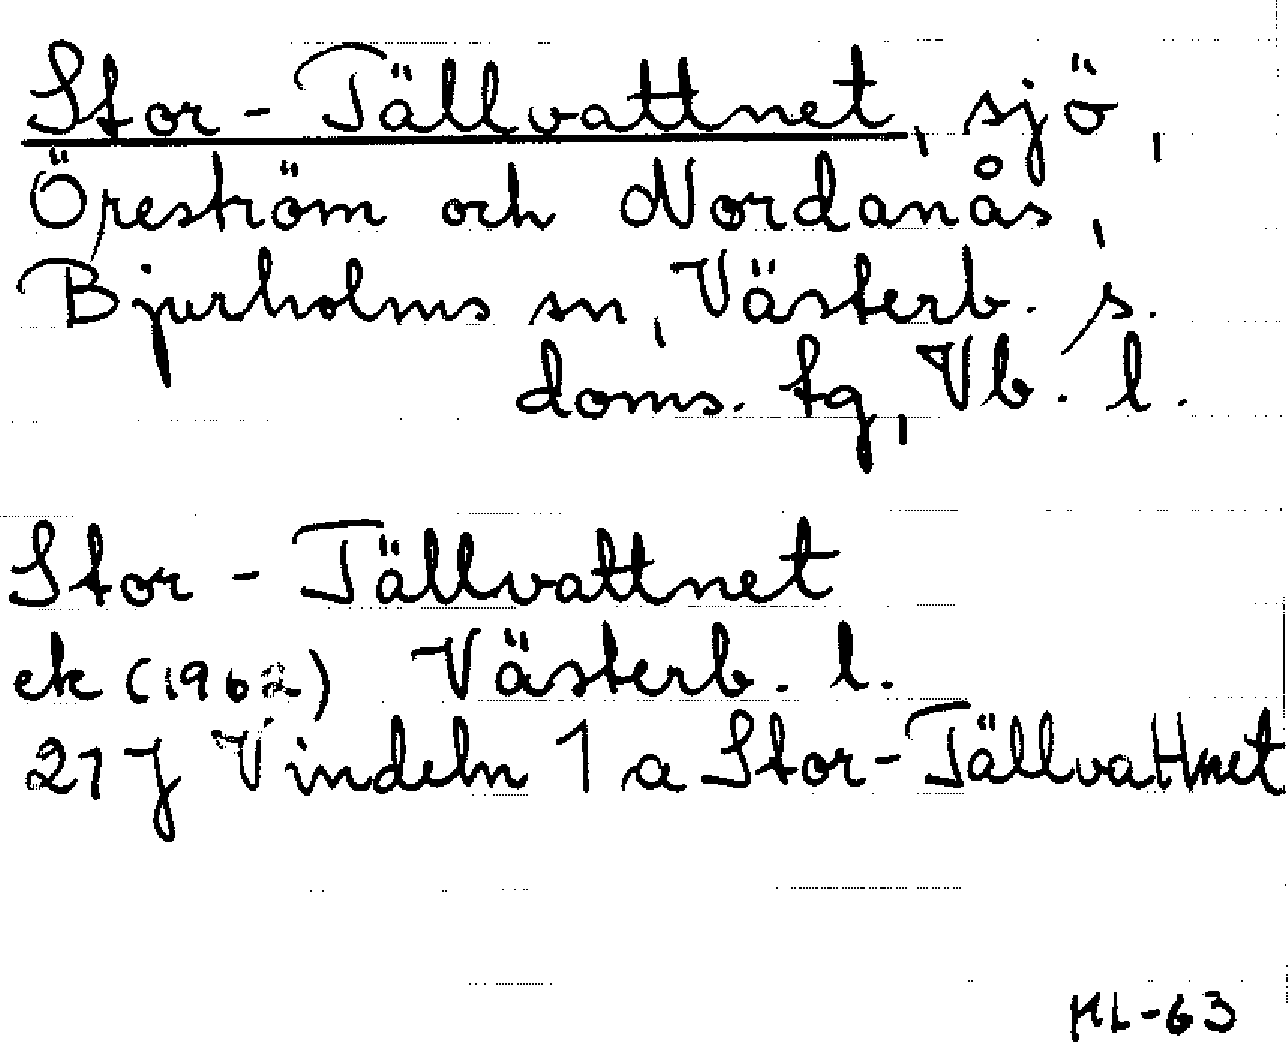 Stor-Tällvattnet, sjö,
Öreström och Nordanås,
Bjurholms sn, Västerb. s.
doms. tg, Vb. l.
Stor-Tällvattnet
ek (1962) Västerb. l.
21 J Vindeln 1 a Stor-Tällvattnet
HL-63